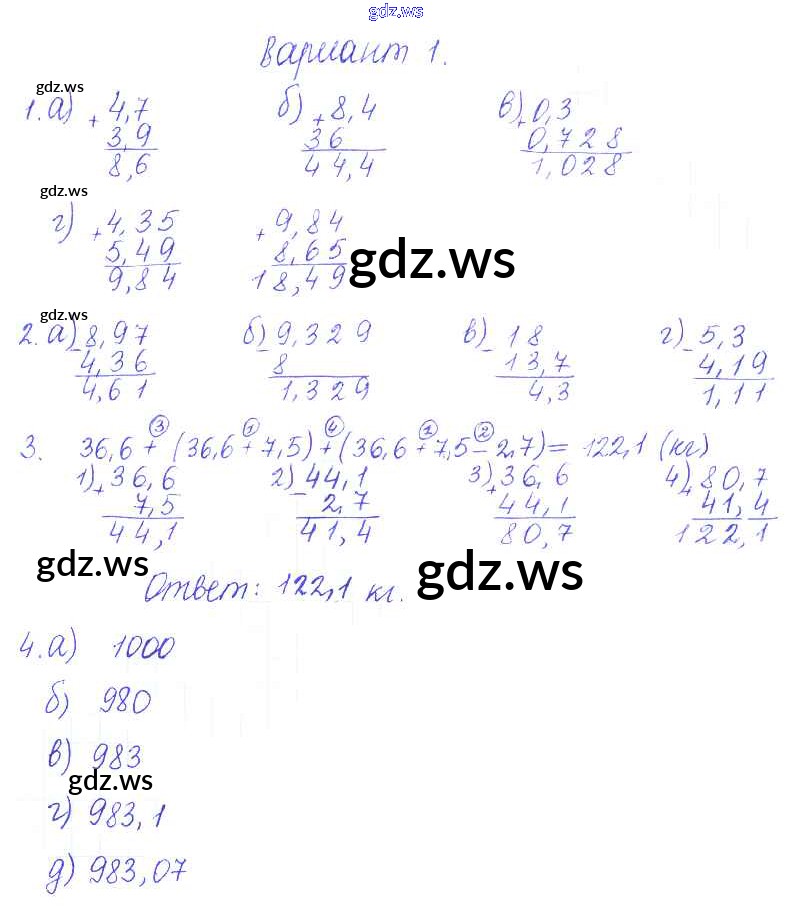 gdz.ws
Вариант 1.
gdz.ws
1. а) + 4,7 б) + 8,4 в) + 0,3
3,9 36 0,728
8,6 44,4 1,028
gdz.ws
г) + 4,35 + 9,84
5,49 8,65
9,84 18,49
gdz.ws
gdz.ws
2. а) - 8,97 б) - 9,329 в) - 18 г) - 5,3
4,36 8 13,7 4,19
4,61 1,329 4,3 1,11
3 1 4 1 2
3. 36,6 + (36,6 + 7,5) + (36,6 + 7,5 - 2,7) = 122,1 (кг)
1) + 36,6 2) - 44,1 3) + 36,6 4) + 80,7
7,5 2,7 44,1 41,4
44,1 41,4 80,7 122,1
gdz.ws gdz.ws
Ответ: 122,1 кг.
4. а) 1000
б) 980
в) 983
gdz.ws
г) 983,1
д) 983,07